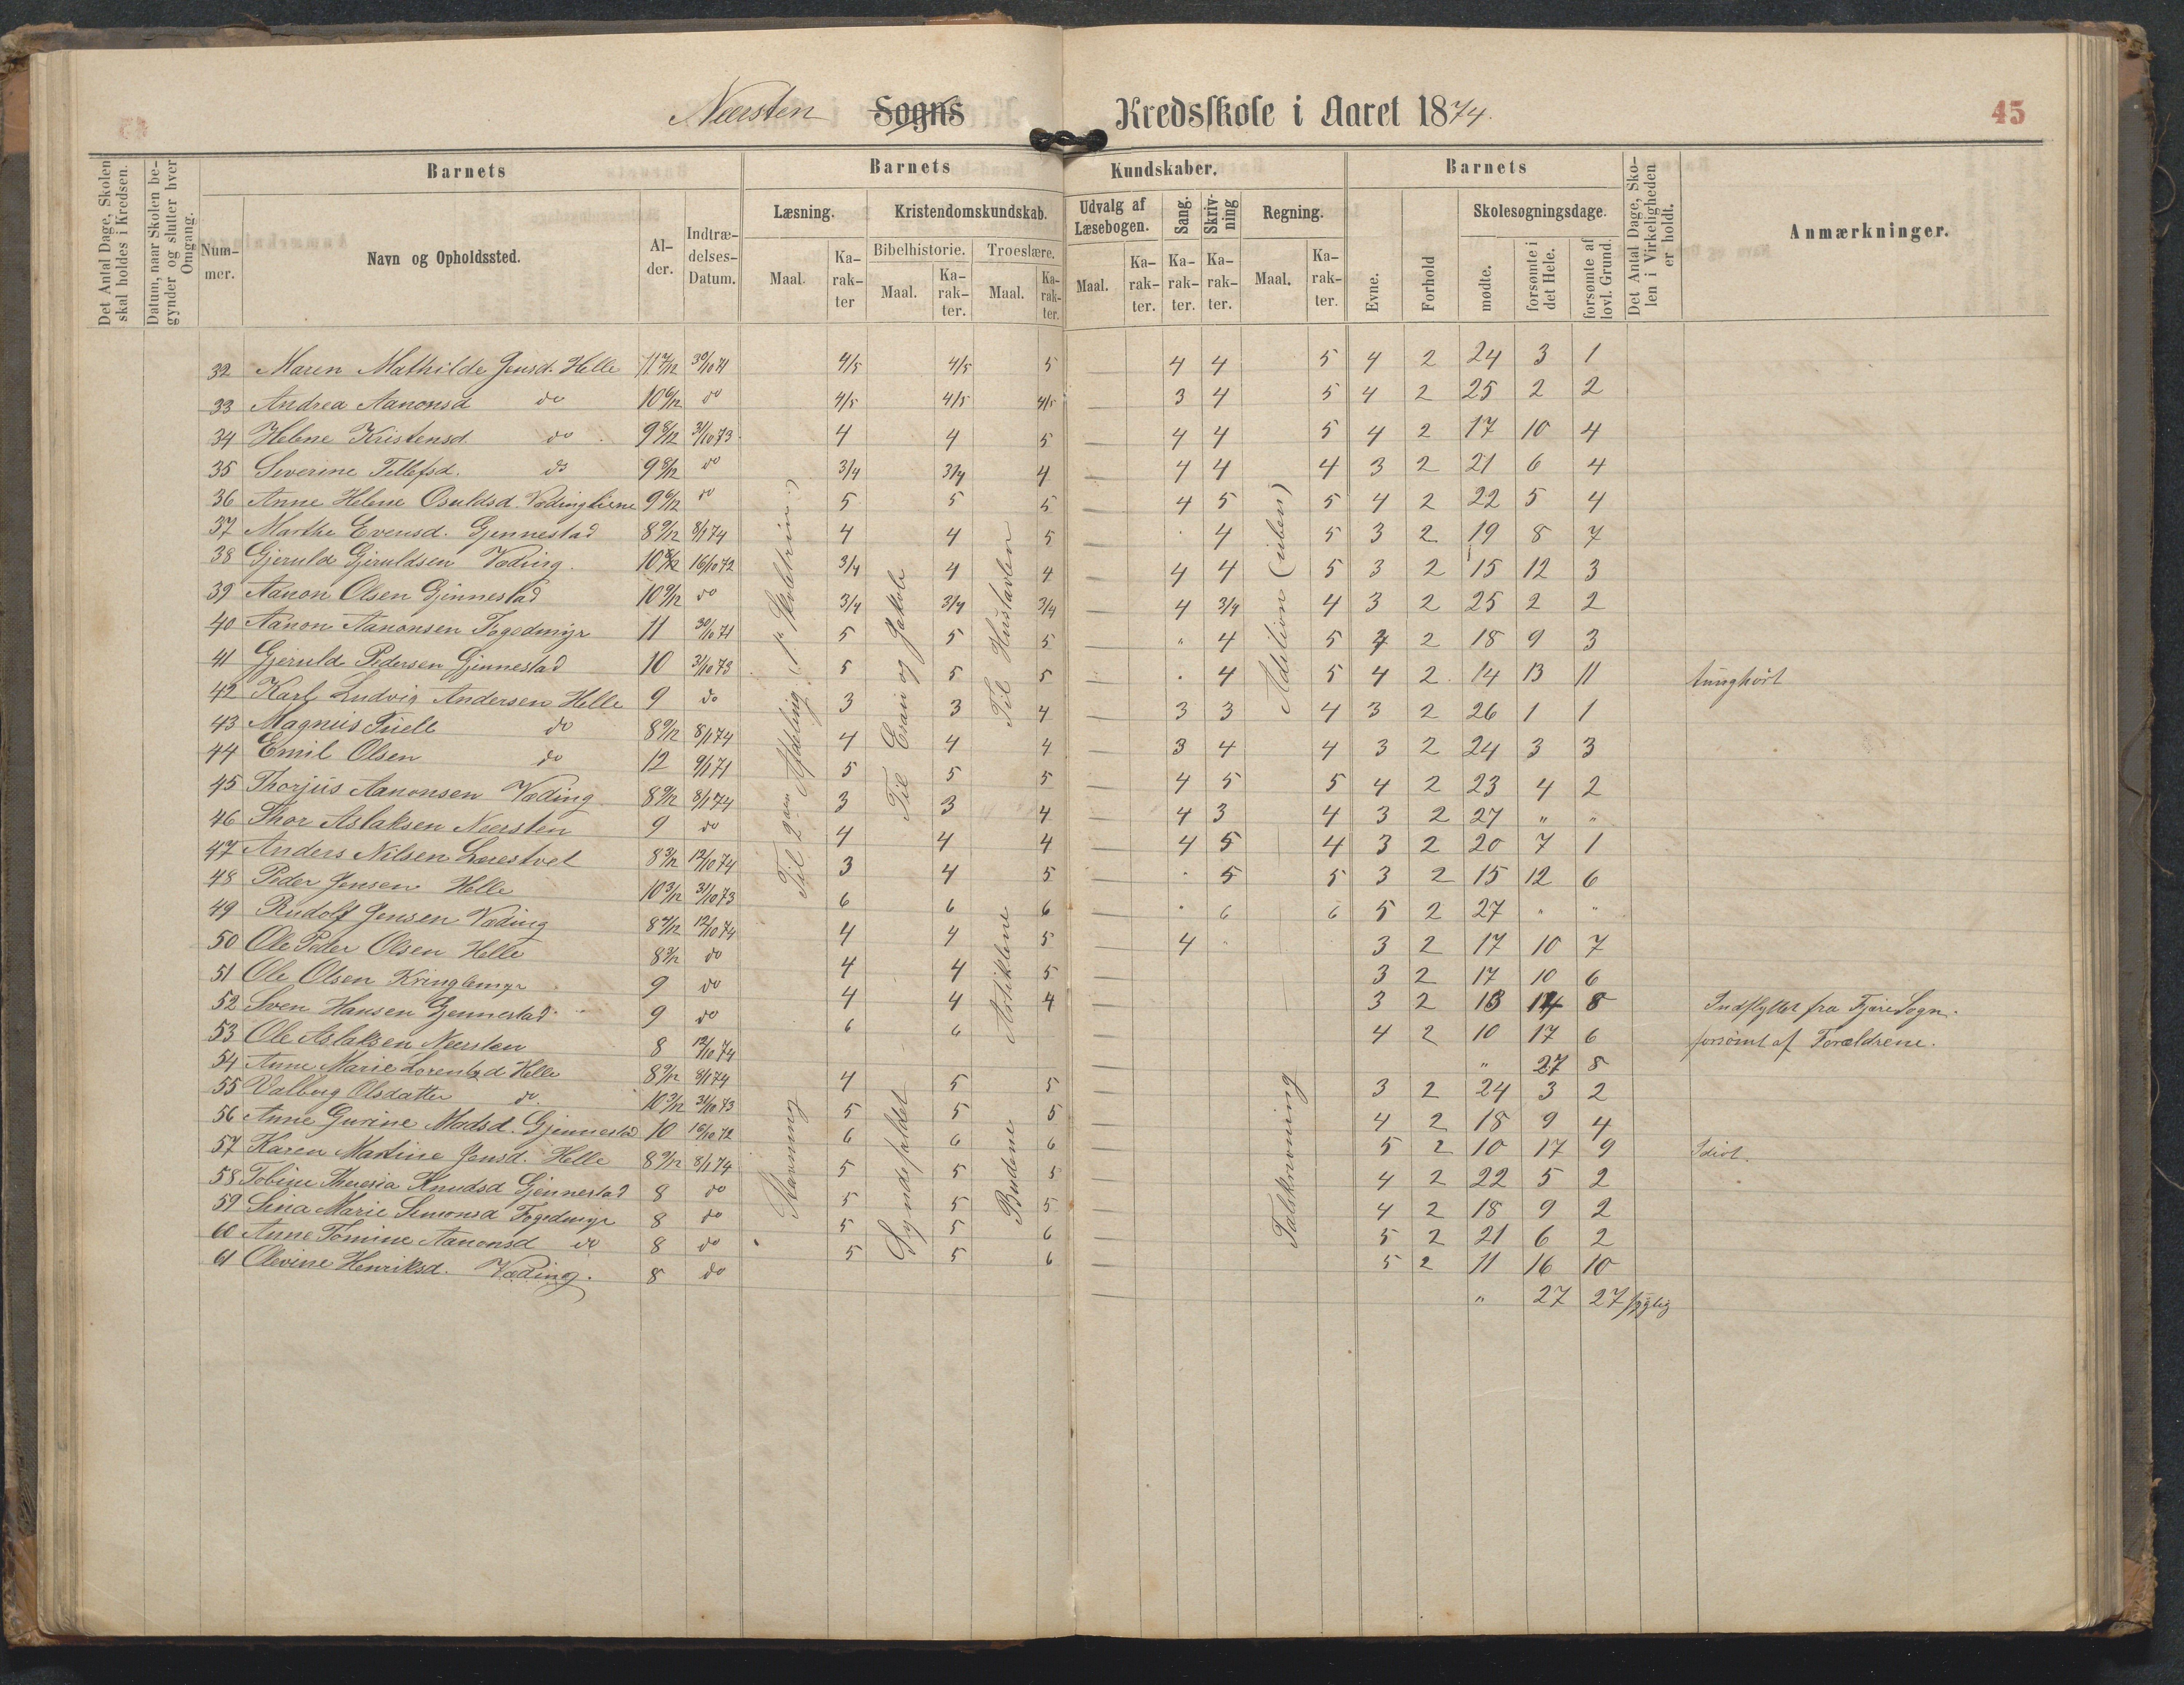 Neersten Sogns Kredsskole i Aaret 1874.
45
Det Antal Dage, Skolen skal holdes i Kredsen.
Datum, naar Skolen begynder og slutter hver Omgang.
Barnets
Barnets Kundskaber.
Barnets
Nummer.
Navn og Opholdssted.
Alder.
Indtrædelses-Datum.
Læsning. Kristendomskundskab. Udvalg af Læsebogen. Sang. Skrivning Regning.
Bibelhistorie. Troeslære.
Maal. Karakter Maal. Karakter. Maal. Karakter. Maal. Karakter. Karakter. Karakter. Maal. Karakter.
Evne. Forhold
Skolesøgningsdage.
mødte. forsømte i det Hele. forsømte af lovl. Grund.
Det Antal Dage, Skolen i Virkeligheden er holdt.
Anmærkninger.
32 Maren Mathilde Jensd. Helle 11 7/12 30/10 71 4/5 4/5 5 4 4 5 4 2 24 3 1
33 Andrea Aanonsd do 10 6/12 do 4/5 4/5 4/5 — 3 4 5 4 2 25 2 2
34 Helene Kristensd. do 9 8/12 31/10 73 4 4 5 — 4 4 5 4 2 17 10 4
35 Severine Tellefsd. do 9 8/12 do 3/4 3/4 4 — 4 4 4 3 2 21 6 4
36 Anne Helene Osuldsd. Vædingtiene 9 6/12 do 5 5 5 — 4 5 5 4 2 22 5 4
37 Marthe Evensd. Gjennestad 8 9/12 8/1 74 4 4 5 — . 4 5 3 2 19 8 7
38 Gjeruld Gjeruldsen Væding. 16/10 72 3/4 4 4 — 4 4 5 3 2 15 12 3
39 Aanon Olsen Gjennestad 10 9/12 do 3/4 3/4 3/4 — 4 3/4 4 3 2 25 2 2
40 Aanon Aanonsen Fogedmyr 11 30/10 71 5 5 5 — " 4 5 4 2 18 9 3
41 Gjeruld Pedersen Gjennestad 10 31/10 73 5 5 5 — . 4 5 4 2 14 13 11 tunghørt
42 Karl Ludvig Andersen Helle 9 do 3 3 4 — 3 3 4 3 2 26 1 1
43 Magnus Tuell do 8 9/12 8/1 74 4 4 4 — 3 4 4 3 2 24 3 3
44 Emil Olsen do 12 9/1 71 5 5 5 — 4 5 5 4 2 23 4 2
45 Thorjus Aanonsen Væding 8 9/12 8/1 74 3 3 4 — 4 3 4 3 2 27 " "
46 Thor Aslaksen Neersten 9 do 4 4 4 — 4 5 4 3 2 20 7 1
47 Anders Nilsen Lærestvet 8 3/12 12/10 74 3 4 5 — . 5 5 3 2 15 12 6
48 Peder Jensen Helle 10 3/12 31/10 73 6 6 6 — . 6 6 5 2 27 " "
49 Rudolf Jensen Væding 8 7/12 12/10 74 4 4 5 — 4 " 3 2 17 10 7
50 Ole Peder Olsen Helle 8 3/12 do 4 4 5 — 3 2 17 10 6
51 Ole Olsen Kringlemyr 9 do 4 4 4 — 3 2 13 14 8 Indflyttet fra Fjære Sogn.
52 Sven Hansen Gjennestad 9 do 6 6 4 2 10 17 6 forsømt af Forældrene.
53 Ole Aslaksen Neersten 8 12/10 74 " 27 8
54 Anne Marie Lorentzd Helle 8 9/12 8/1 74 4 5 5 — 3 2 24 3 2
55 Valborg Olsdatter do. 10 3/12 31/10 73 5 5 5 — 4 2 18 9 4
56 Anne Gurine Madsd. Gjennestad 10 16/10 72 6 6 6 — 5 2 10 17 9 Idiot.
57 Karen Martine Jensd. Helle 8 9/12 8/1 74 5 5 5 — 4 2 22 5 2
58 Tobine Theresia Knudsd Gjennestad 8 do 5 5 5 — 4 2 18 9 2
59 Sina Marie Simonsd Fogedmyr 8 do 5 5 6 — 5 2 21 6 2
60 Anne Tomine Aanonsd do 8 do 5 5 6 — 5 2 11 16 10
61 Olevine Henriksd. Væding. 8 do — " 27 27 sygelig
Til 2den Afdeling. (1ste Skoletrin)
Til Esau og Jakob
Til Hustavlen
Artiklene
Addition (uben)
Stavning
Syndefaldet
Budene
Talskrivning